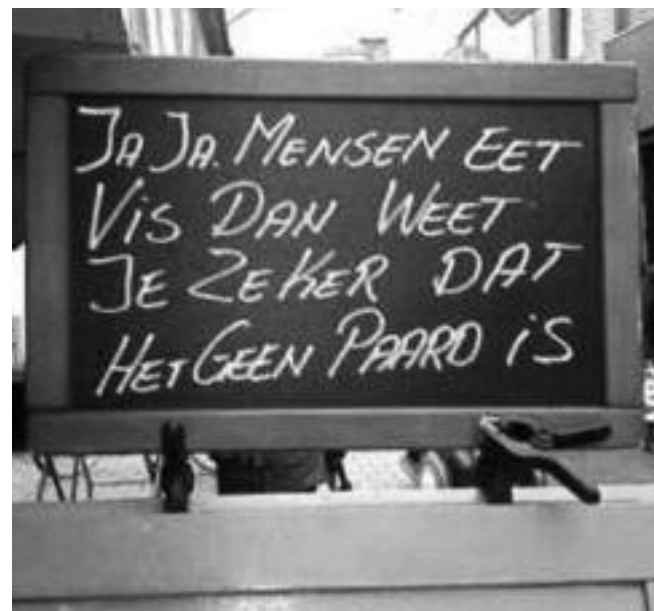 JA JA. MENSEN EET
VIS DAN WEET
JE ZEKER DAT
HET GEEN PAARD iS